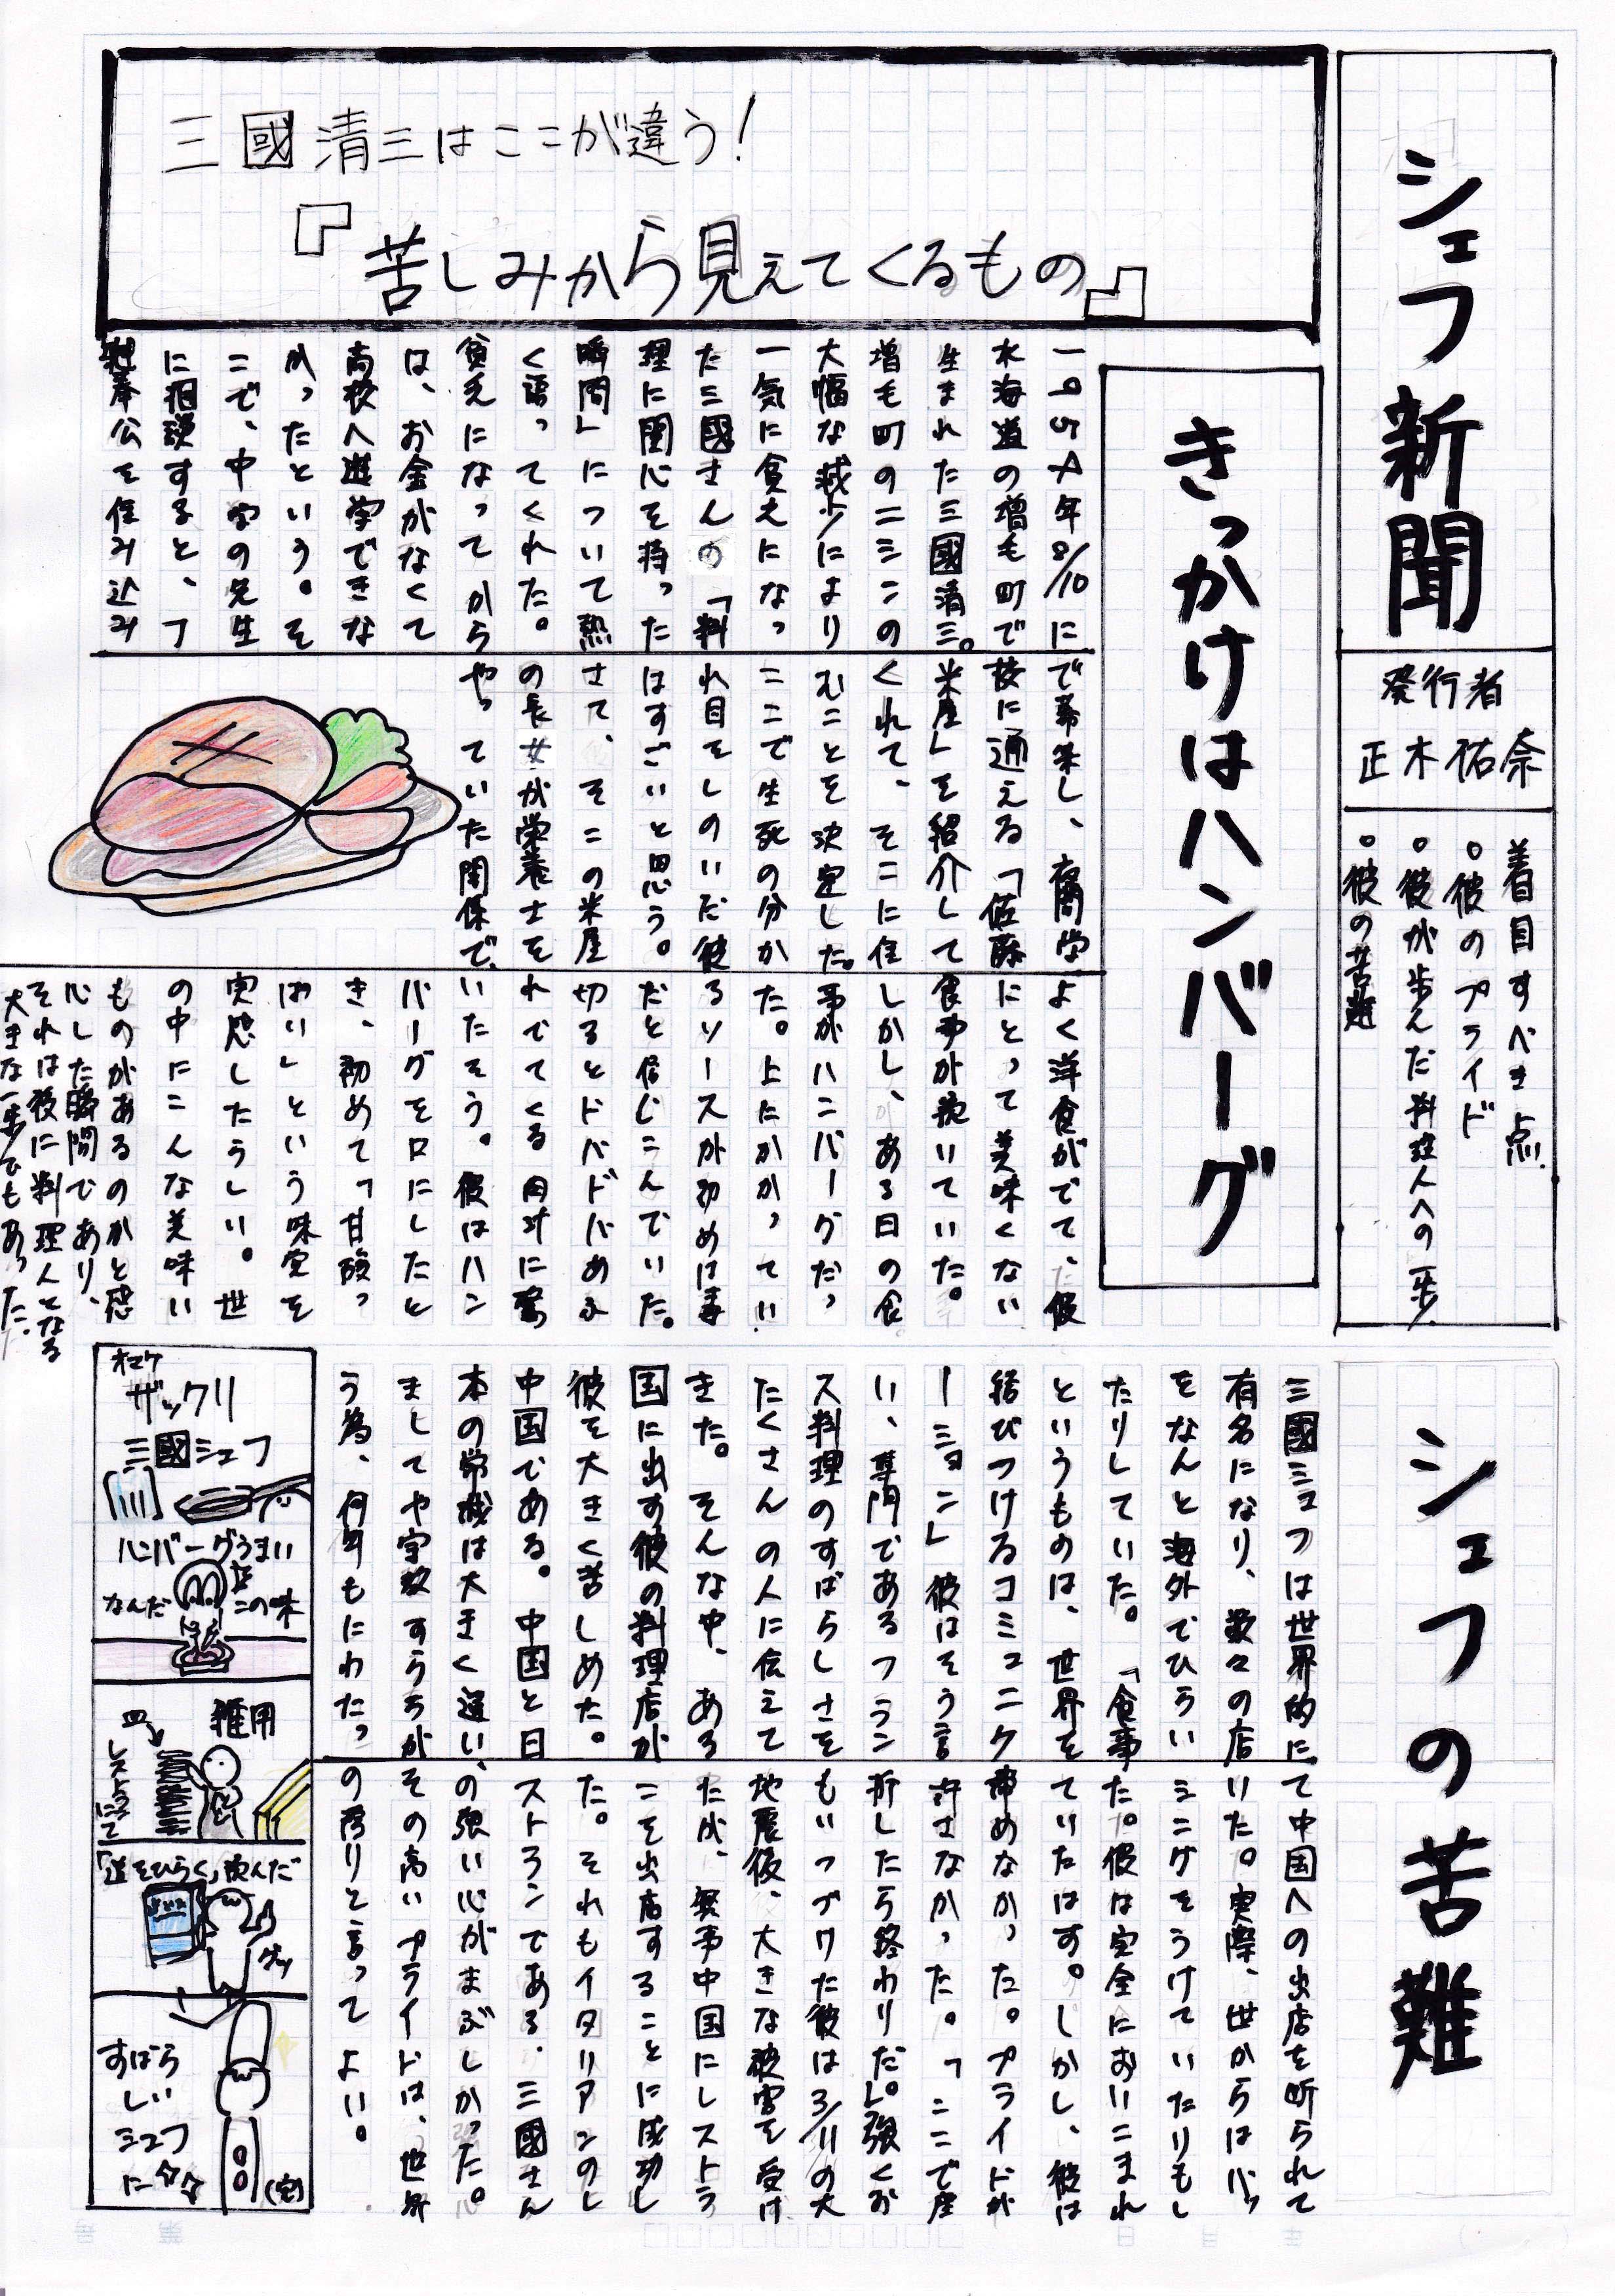 シェフ新聞
発行者
正木祐奈
着目すべき点
。彼のプライド
。彼が歩んだ料理人への一歩
。彼の苦難
三國清三はここが違う!
『苦しみから見えてくるもの』
きっかけはハンバーグ
水海道の増毛町で
生まれた三國清三。
増毛町のニシンの
大幅な減少により
一気に貧乏になっ
た三國さんの「料
理に関心を持った
瞬間」について熱
く語ってくれた。
貧乏になってから
は、お金がなくて
高校へ進学できな
かったという。そ
こで、中学の先生
に相談すると、丁
稚奉公を住み込み
校に通える「佐藤
米屋」を紹介して
くれて、そこに住
むことを決定した。
ここで生死の分か
れ目をしのいだ彼
はすごいと思う。
さて、その米屋
の長女が栄養士を
やっていた関係で、
よく洋食がでて、彼
にとって美味くない
食事が続いていた。
しかし、ある日の食
事がハンバーグだっ
た。上にかかってい
るソースが初めは毒
だと信じこんでいた。
切るとドバドバあふ
れでてくる肉汁に驚
いたそう。彼はハン
バーグを口にしたと
き、初めて「甘酸っ
ぱい」という味覚を
実感したうしい。世
の中にこんな美味い
ものがあるのかと感
心した瞬間であり、
それは彼に料理人となる
大きな一歩でもあった。
シェフの苦難
三國シェフは世界的に
有名になり、数々の店
をなんと海外でひらい
たりしていた。「食事
というものは、世界を
結びつけるコミュニケ
ーション」彼はそう言
い、専門であるフラン
ス料理のすばらしさを
たくさんの人に伝えて
きた。そんな中、ある
国に出す彼の料理店が
彼を大きく苦しめた。
中国である。中国と日
本の常識は大きく違い、
ましてや宗教すらちが
う為、何年もにわたっ
て中国への出店を断られて
いた。実際、世からはバッ
シングをうけていたりもし
た。彼は完全においこまれ
ていたはず。しかし、彼は
諦めなかった。プライドが
許さなかった。「ここで座
折したら終わりだ。」強くお
もいつづけた彼は3/11の大
地震後、大きな被害を受け
たが、無事中国にレストラ
ンを出店することに成功し
た。それもイタリアンのレ
ストランである。三國さん
の強い心がまぶしかった。
その高いプライドは、世界
の誇りと言ってよい。
オマケ
ザックリ
三國シェフ
ハンバーグうまい
なんだこの味
雑用
レストランにて
「道をひらく」読んだ
グッ
すばら
しい
シェフ
に☆☆
(完)